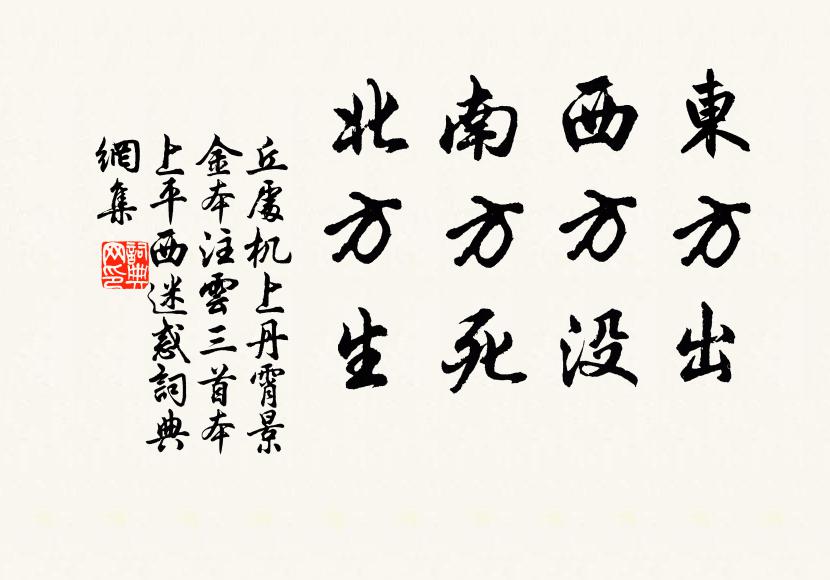 東方出
西方没
南方死
北方生
丘處机上丹霄景
金本注雲三首本
上平西迷惑詞典
網集
詞典
网印